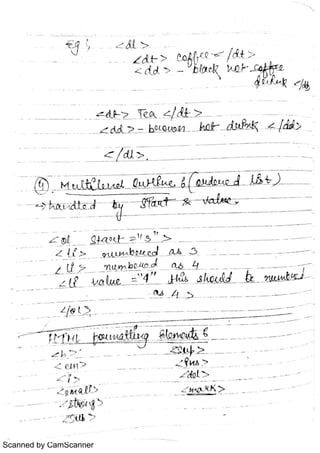 Eg :, <dl>
<dt> coffee </dt>
<dd> - black hot coffee
drink </dd>
<dt> Tea </dt>
<dd> - brown hot drink </dd>
</dl>.
④. Multilevel Outline : (ordered list)
→ handled by START & value.
<ol start="3">
<li> numbered as 3
<li> numbered as 4
<li value="4" this should be numbered
as 4 >
</ol>
HTML formatting Elements :
<b> <sup>
<em> <ins>
<i> <del>
<small> <mark>
<strong>
<sub>
Scanned by CamScanner